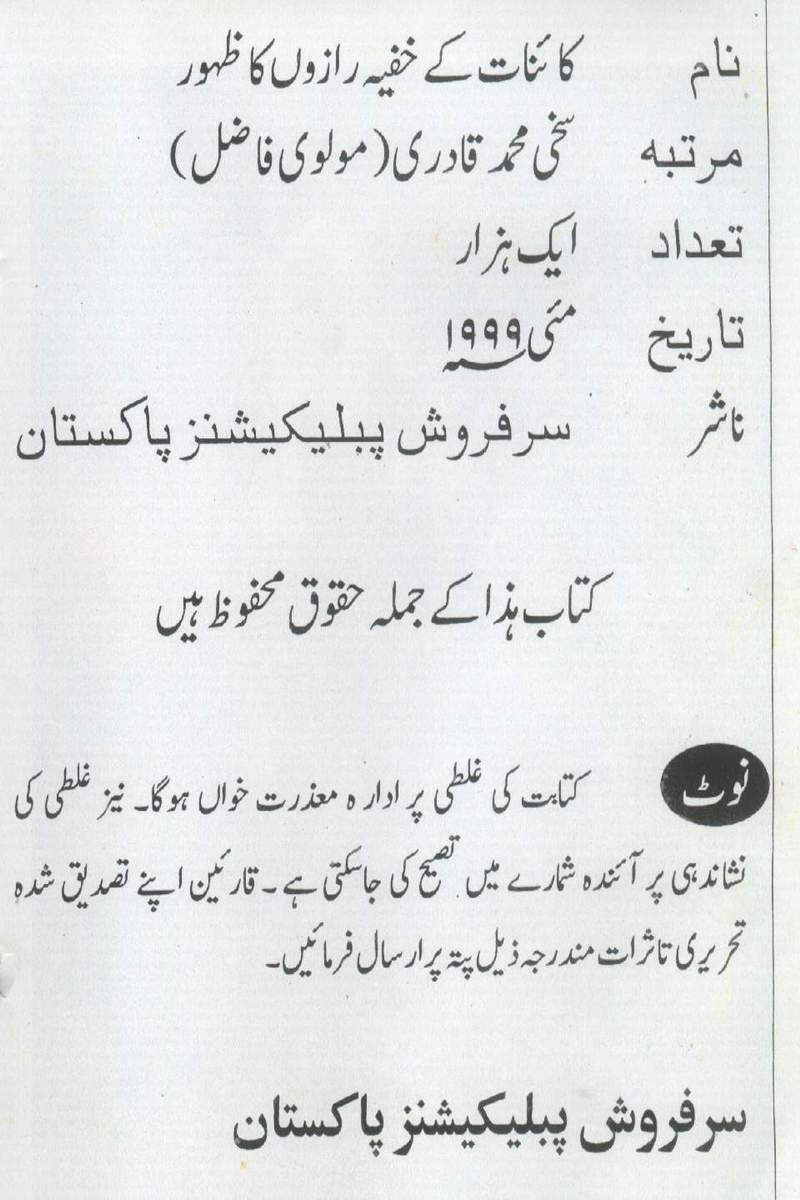 نام کائنات کے خفیہ رازوں کا ظہور
مرتبہ سخی محمد قادری (مولوی فاضل)
تعداد ایک ہزار
تاریخ مئی ۱۹۹۹ء
ناشر سرفروش پبلیکیشنز پاکستان
کتاب ہذا کے جملہ حقوق محفوظ ہیں
نوٹ کتابت کی غلطی پر ادارہ معذرت خواں ہوگا۔ نیز غلطی کی
نشاندہی پر آئندہ شمارے میں تصیح کی جاسکتی ہے۔ قارئین اپنے تصدیق شدہ
تحریری تاثرات مندرجہ ذیل پتہ پر ارسال فرمائیں۔
سرفروش پبلیکیشنز پاکستان